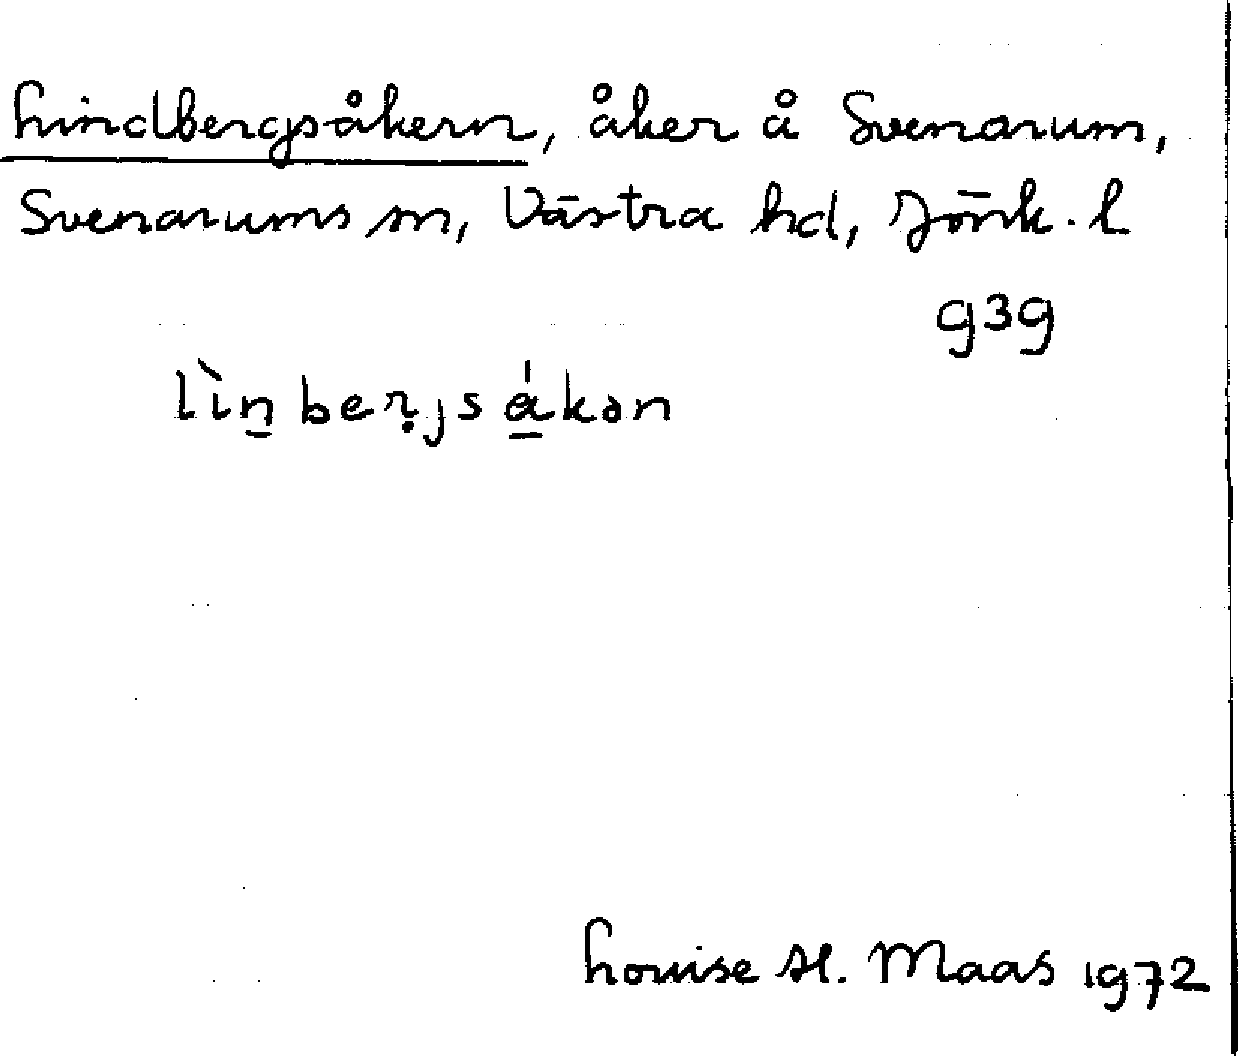 Lindbergsåkern, åker å Svenarum,
Svenarums sn, Västra hd, Jönk. l
939
lìn̠berjs ǻ̠kən
Louise H. Maas 1972